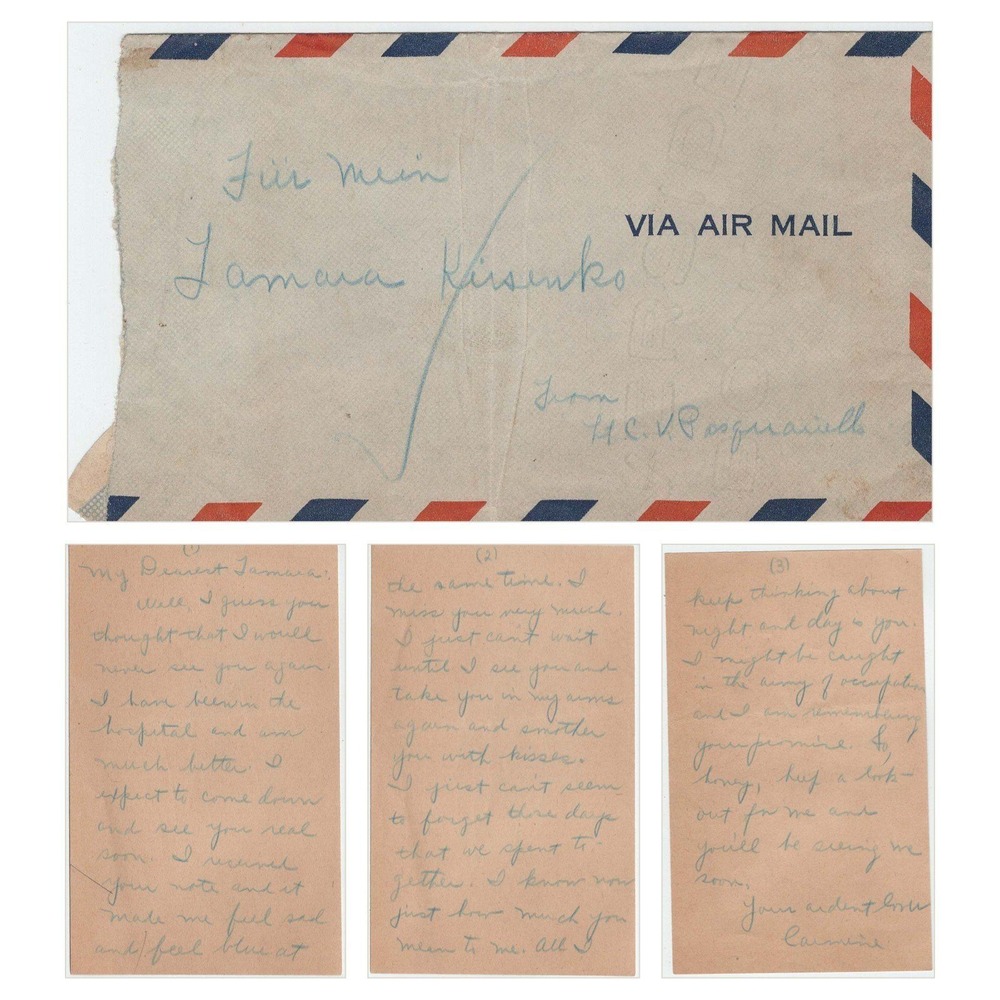 Für Mein
VIA AIR MAIL
Tamara Kirsenko
From
Lt C. V. Pasquariello
(1)
My Dearest Tamara:
Well, I guess you
thought that I would
never see you again.
I have been in the
hospital and am
much better. I
expect to come down
and see you real
soon. I received
your note and it
made me feel sad
and feel blue at
(2)
the same time. I
miss you very much.
I just can't wait
until I see you and
take you in my arms
again and smother
you with kisses.
I just can't seem
to forget those days
that we spent to-
gether. I know now
just how much you
mean to me. All I
(3)
keep thinking about
night and day is you.
I might be caught
in the army of occupation
and I am remembering
your promise. So,
honey, keep a look-
out for me and
you'll be seeing me
soon.
Your ardent lover
Carmine